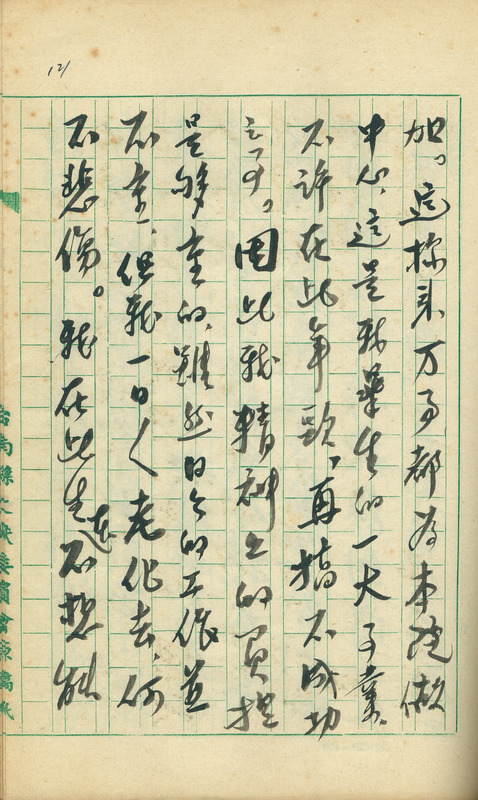 121
加。這樣来万事都為本院做
中心、這是我畢生的一大事業。
不許在此年歌、再搞不成功
之事。因此我精神上的負担
是够重的、雖然日今的工作並
不重、但我一日人老作去、何
不悲傷。我在此生連不想能
台南縣文献委員會原稿紙